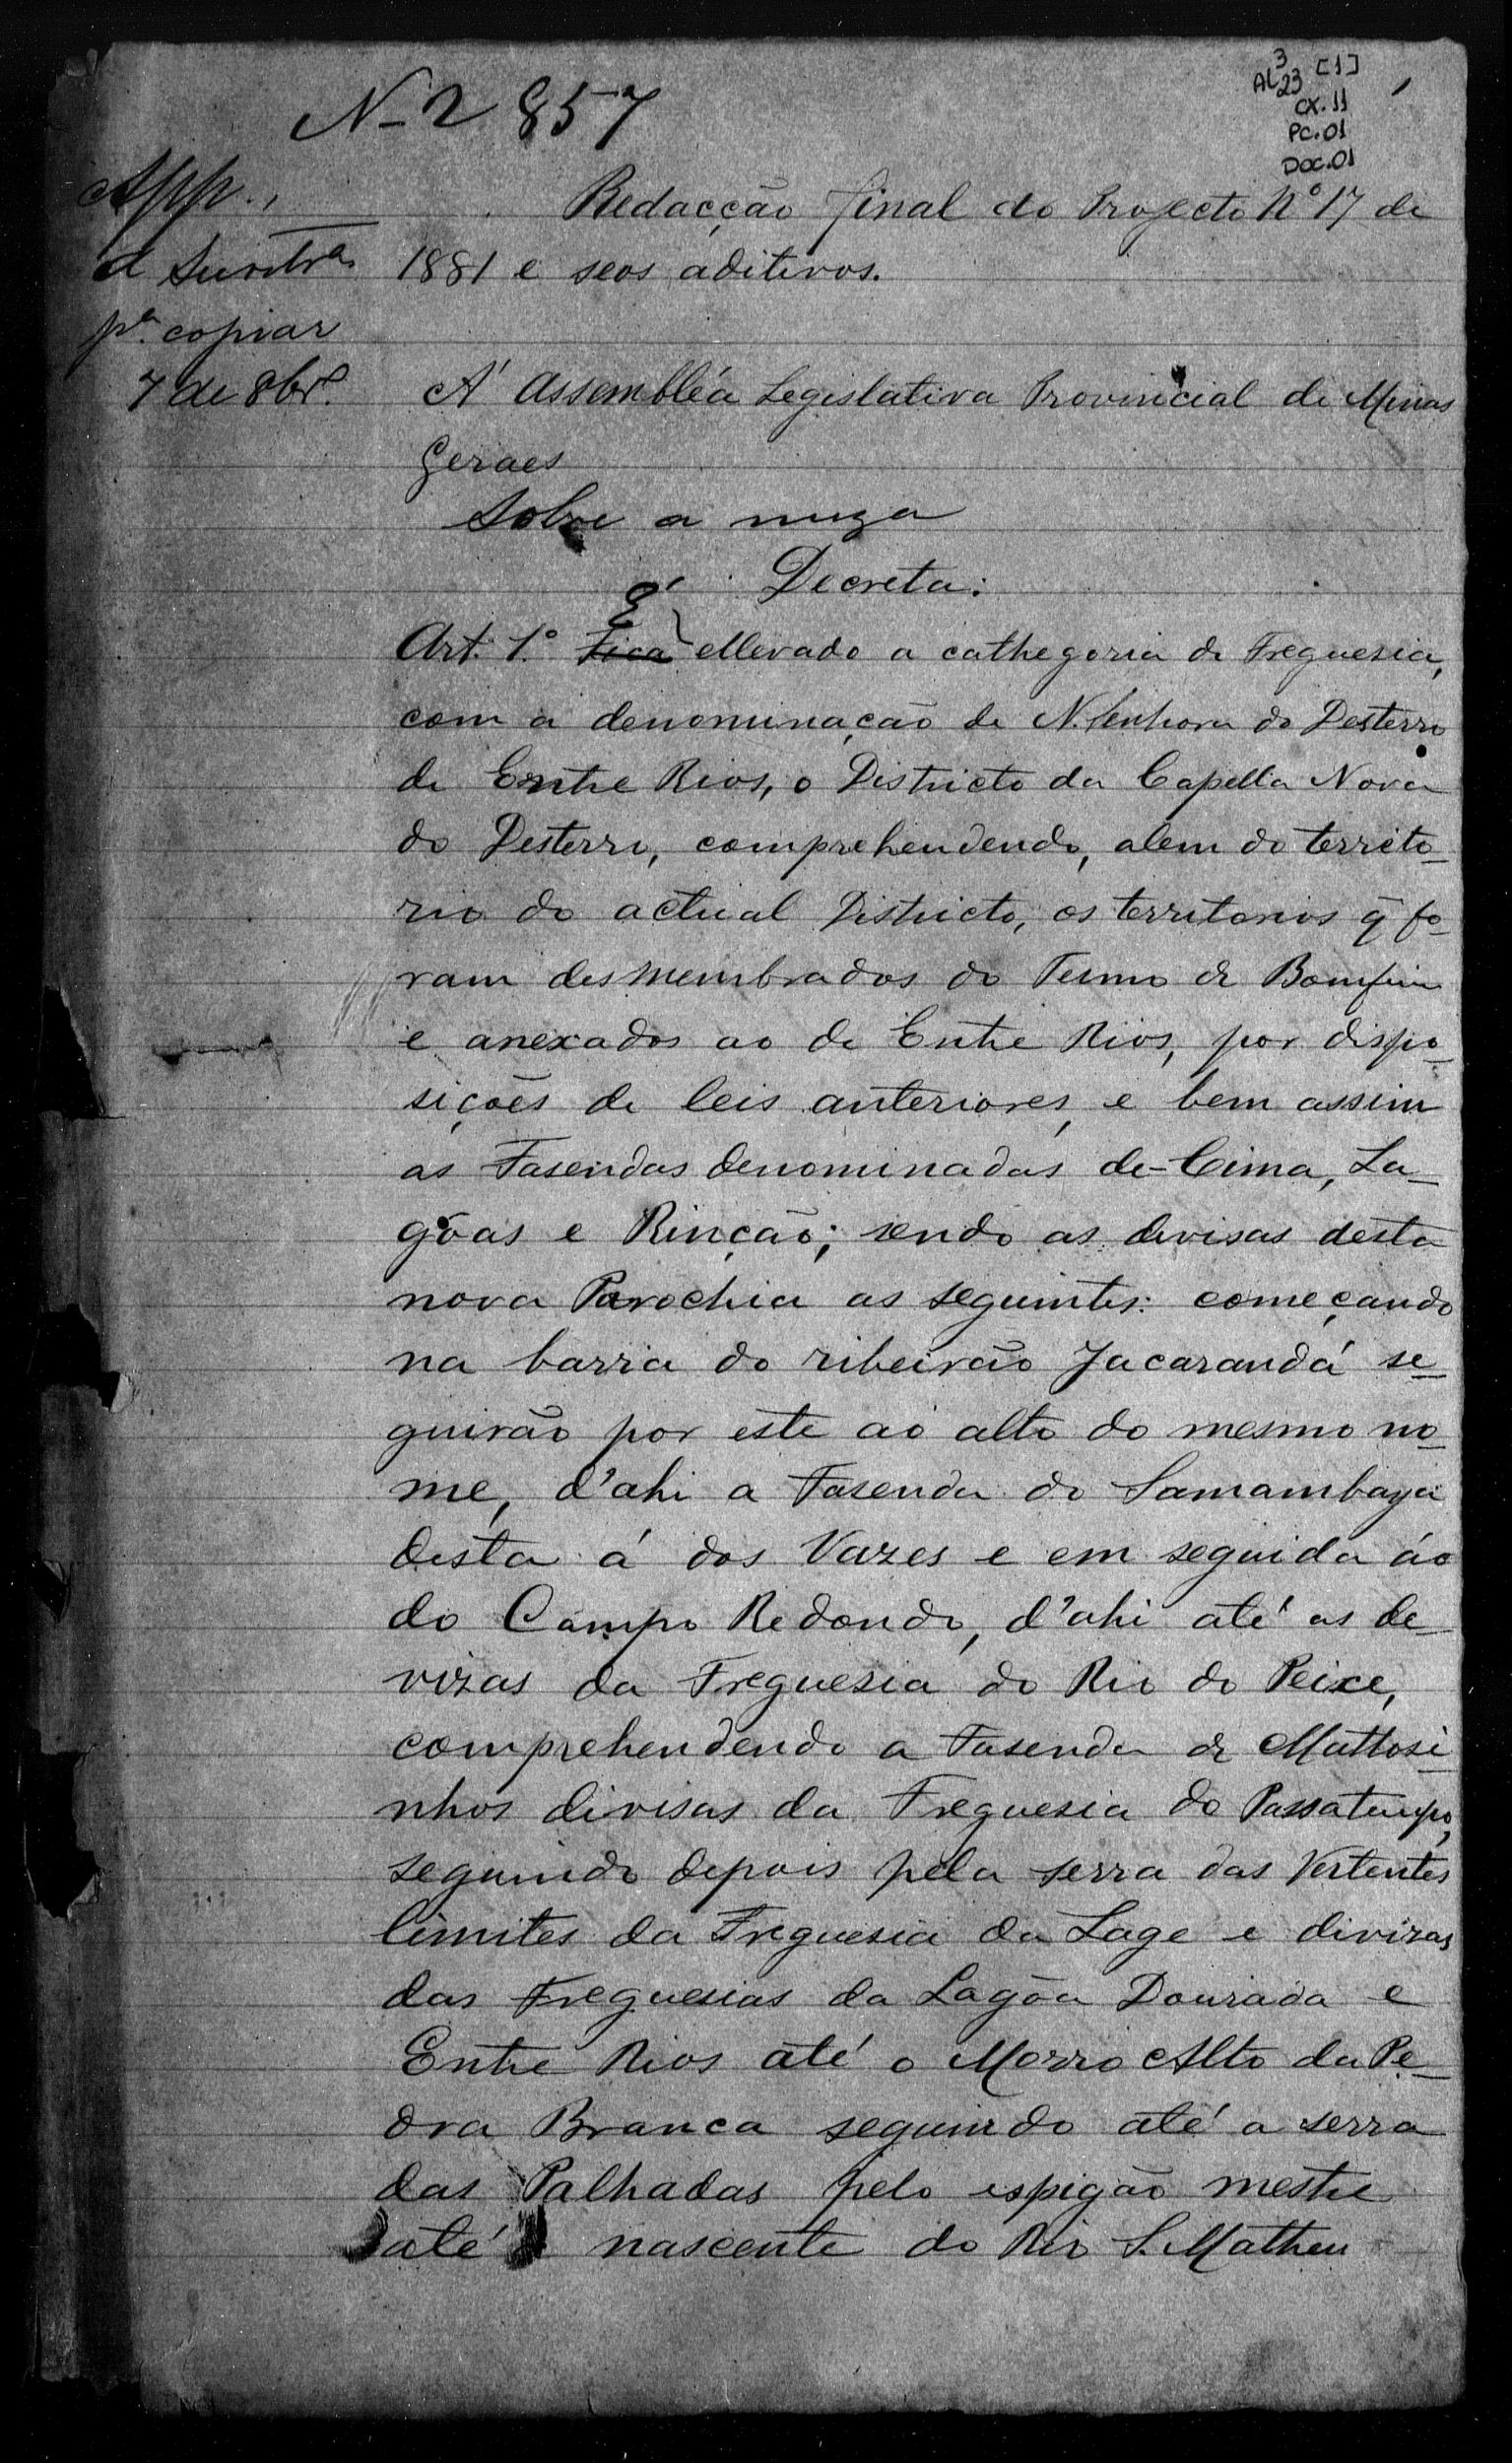 N 2857
AL 3 23 [1]
CX. 11
PC. 01
DOC. 01
App.
Redacção final do Projecto Nº 17 de
1881 e seos aditivos.
pª copiar
7 de 8brº.
A' Assembléa Legislativa Provincial de Minas
Geraes
Sobre a meza
Decreta:
Art. 1.º Fica É ellevado a cathegoria de Freguesia,
com a denominação de N. Senhora do Desterro
de Entre Rios, o Districto da Capella Nova
do Desterro, comprehendendo, alem do territo-
rio do actual Districto, os territorios q̃ fo-
ram desmembrados do Termo de Bomfim
e anexados ao de Entre Rios, por dispo-
sições de leis anteriores, e bem assim
as Fasendas denominadas de-Cima, La-
gôas e Rinção; sendo as devisas desta
nova Parochia as seguintes: começando
na barra do ribeirão Jacarandá se-
guirão por este ao alto do mesmo no-
me, d'ahi a Fasenda do Samambaya
desta á dos Vazes e em seguida áo
do Campo Redondo, d'ahi até as de-
vizas da Freguesia do Rio do Peixe,
comprehendendo a Fasenda de Mattosi-
nhos divisas da Freguesia do Passatempo,
seguindo depois pela serra das Vertentes
limites da Freguesia da Lage e divizas
das Freguesias da Lagôa Dourada e
Entre Rios até o Morro Alto da Pe-
dra Branca seguindo até a serra
das Palhadas pelo espigão mestre
até nascente do Rio S. Matheu